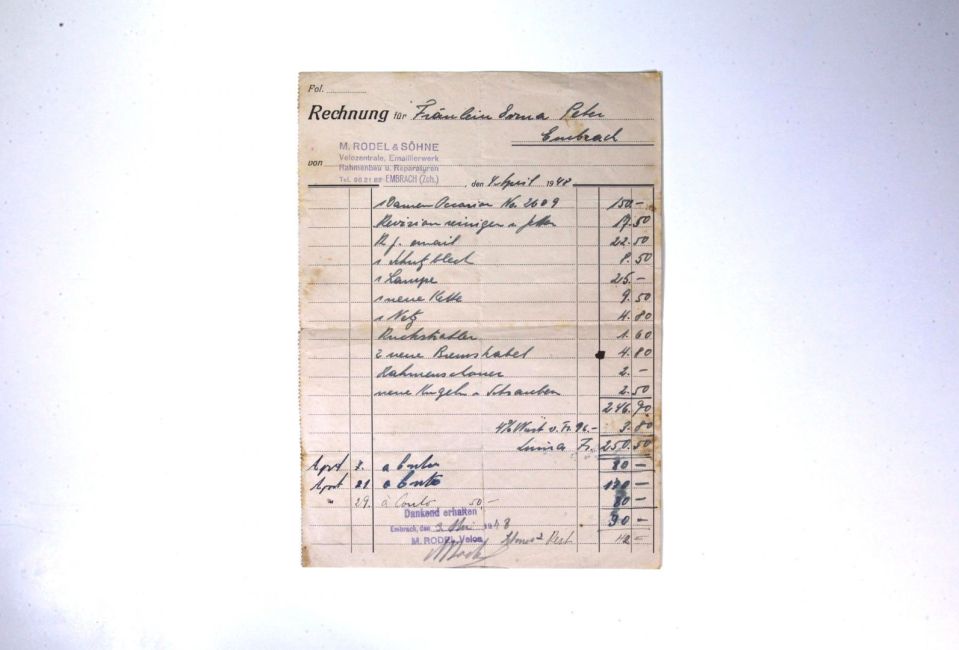 Fol.
Rechnung für Fräulein Erna Peter
Embrach
M. RODEL & SÖHNE
Velozentrale, Emaillierwerk
Rahmenbau u. Reparaturen
von
Tel. 96 21 69 EMBRACH (Zch.)
, den 4. April 1948
1 Damen Occasion No. 2609 150.–
Revision reinigen u. 17.50
R. f. email 22.50
1 Schutzblech 8.50
1 Lampe 25.–
1 neue Kette 9.50
1 Netz 4.80
Rückstrahler 1.60
2 neue Bremskabel 4.80
Rahmenschoner 2.–
neue Kugeln u. Schrauben 2.50
246.90
4% Wust v. Fr. 96.– 3.80
Summa Fr. 250.50
April 7. a Conto 80 –
April 21. a Conto –
" 29. à Conto 50 –
Dankend erhalten
Embrach, den 3. Mai 1948
M. RODEL, Velos